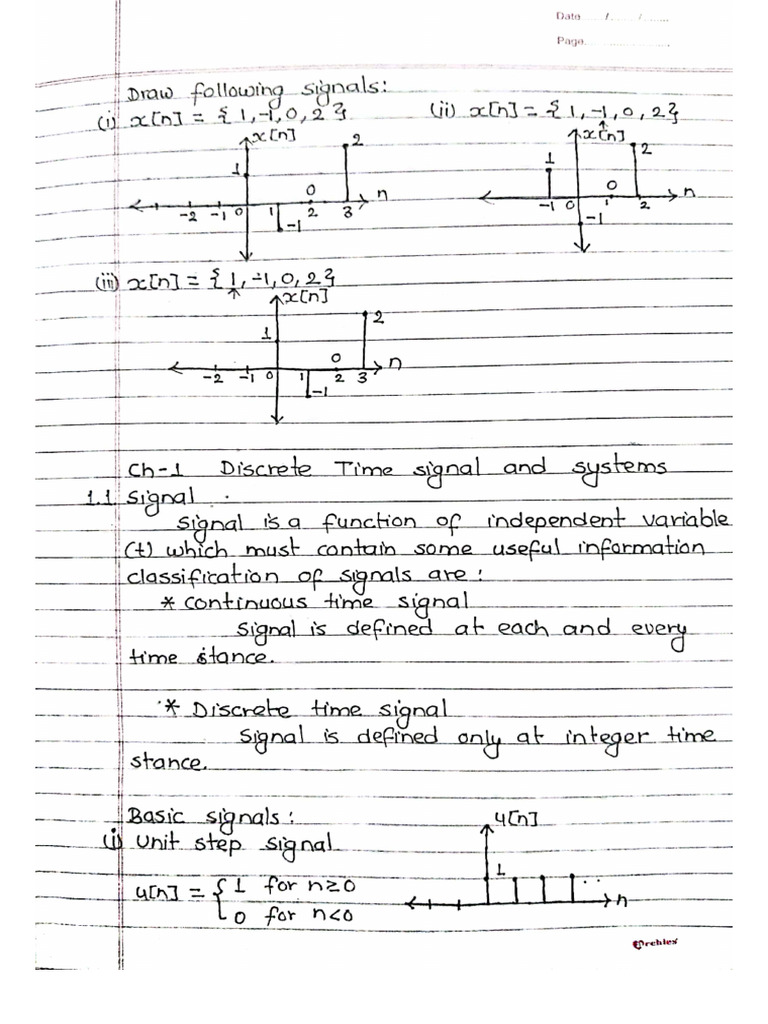 Date ...../....../.......
Page.........................
Draw following signals:
(i) x[n] = {1,-1,0,2} (ii) x[n] = {1,-1,0,2}
↑
x[n] 2 x[n] 2
1 1
0 n 0 n
-2 -1 0 1 2 3 -1 0 1 2
-1 -1
(iii) x[n] = {1,-1,0,2}
↑
x[n]
2
1
0 n
-2 -1 0 1 2 3
-1
Ch-1 Discrete Time signal and systems
1.1 Signal
Signal is a function of independent variable
(t) which must contain some useful information
classification of signals are:
* continuous time signal
Signal is defined at each and every
time stance.
* Discrete time signal
Signal is defined only at integer time
stance.
Basic signals:
(i) Unit step signal
u[n]
u[n] = { 1 for n≥0
0 for n<0
1
n
Archies